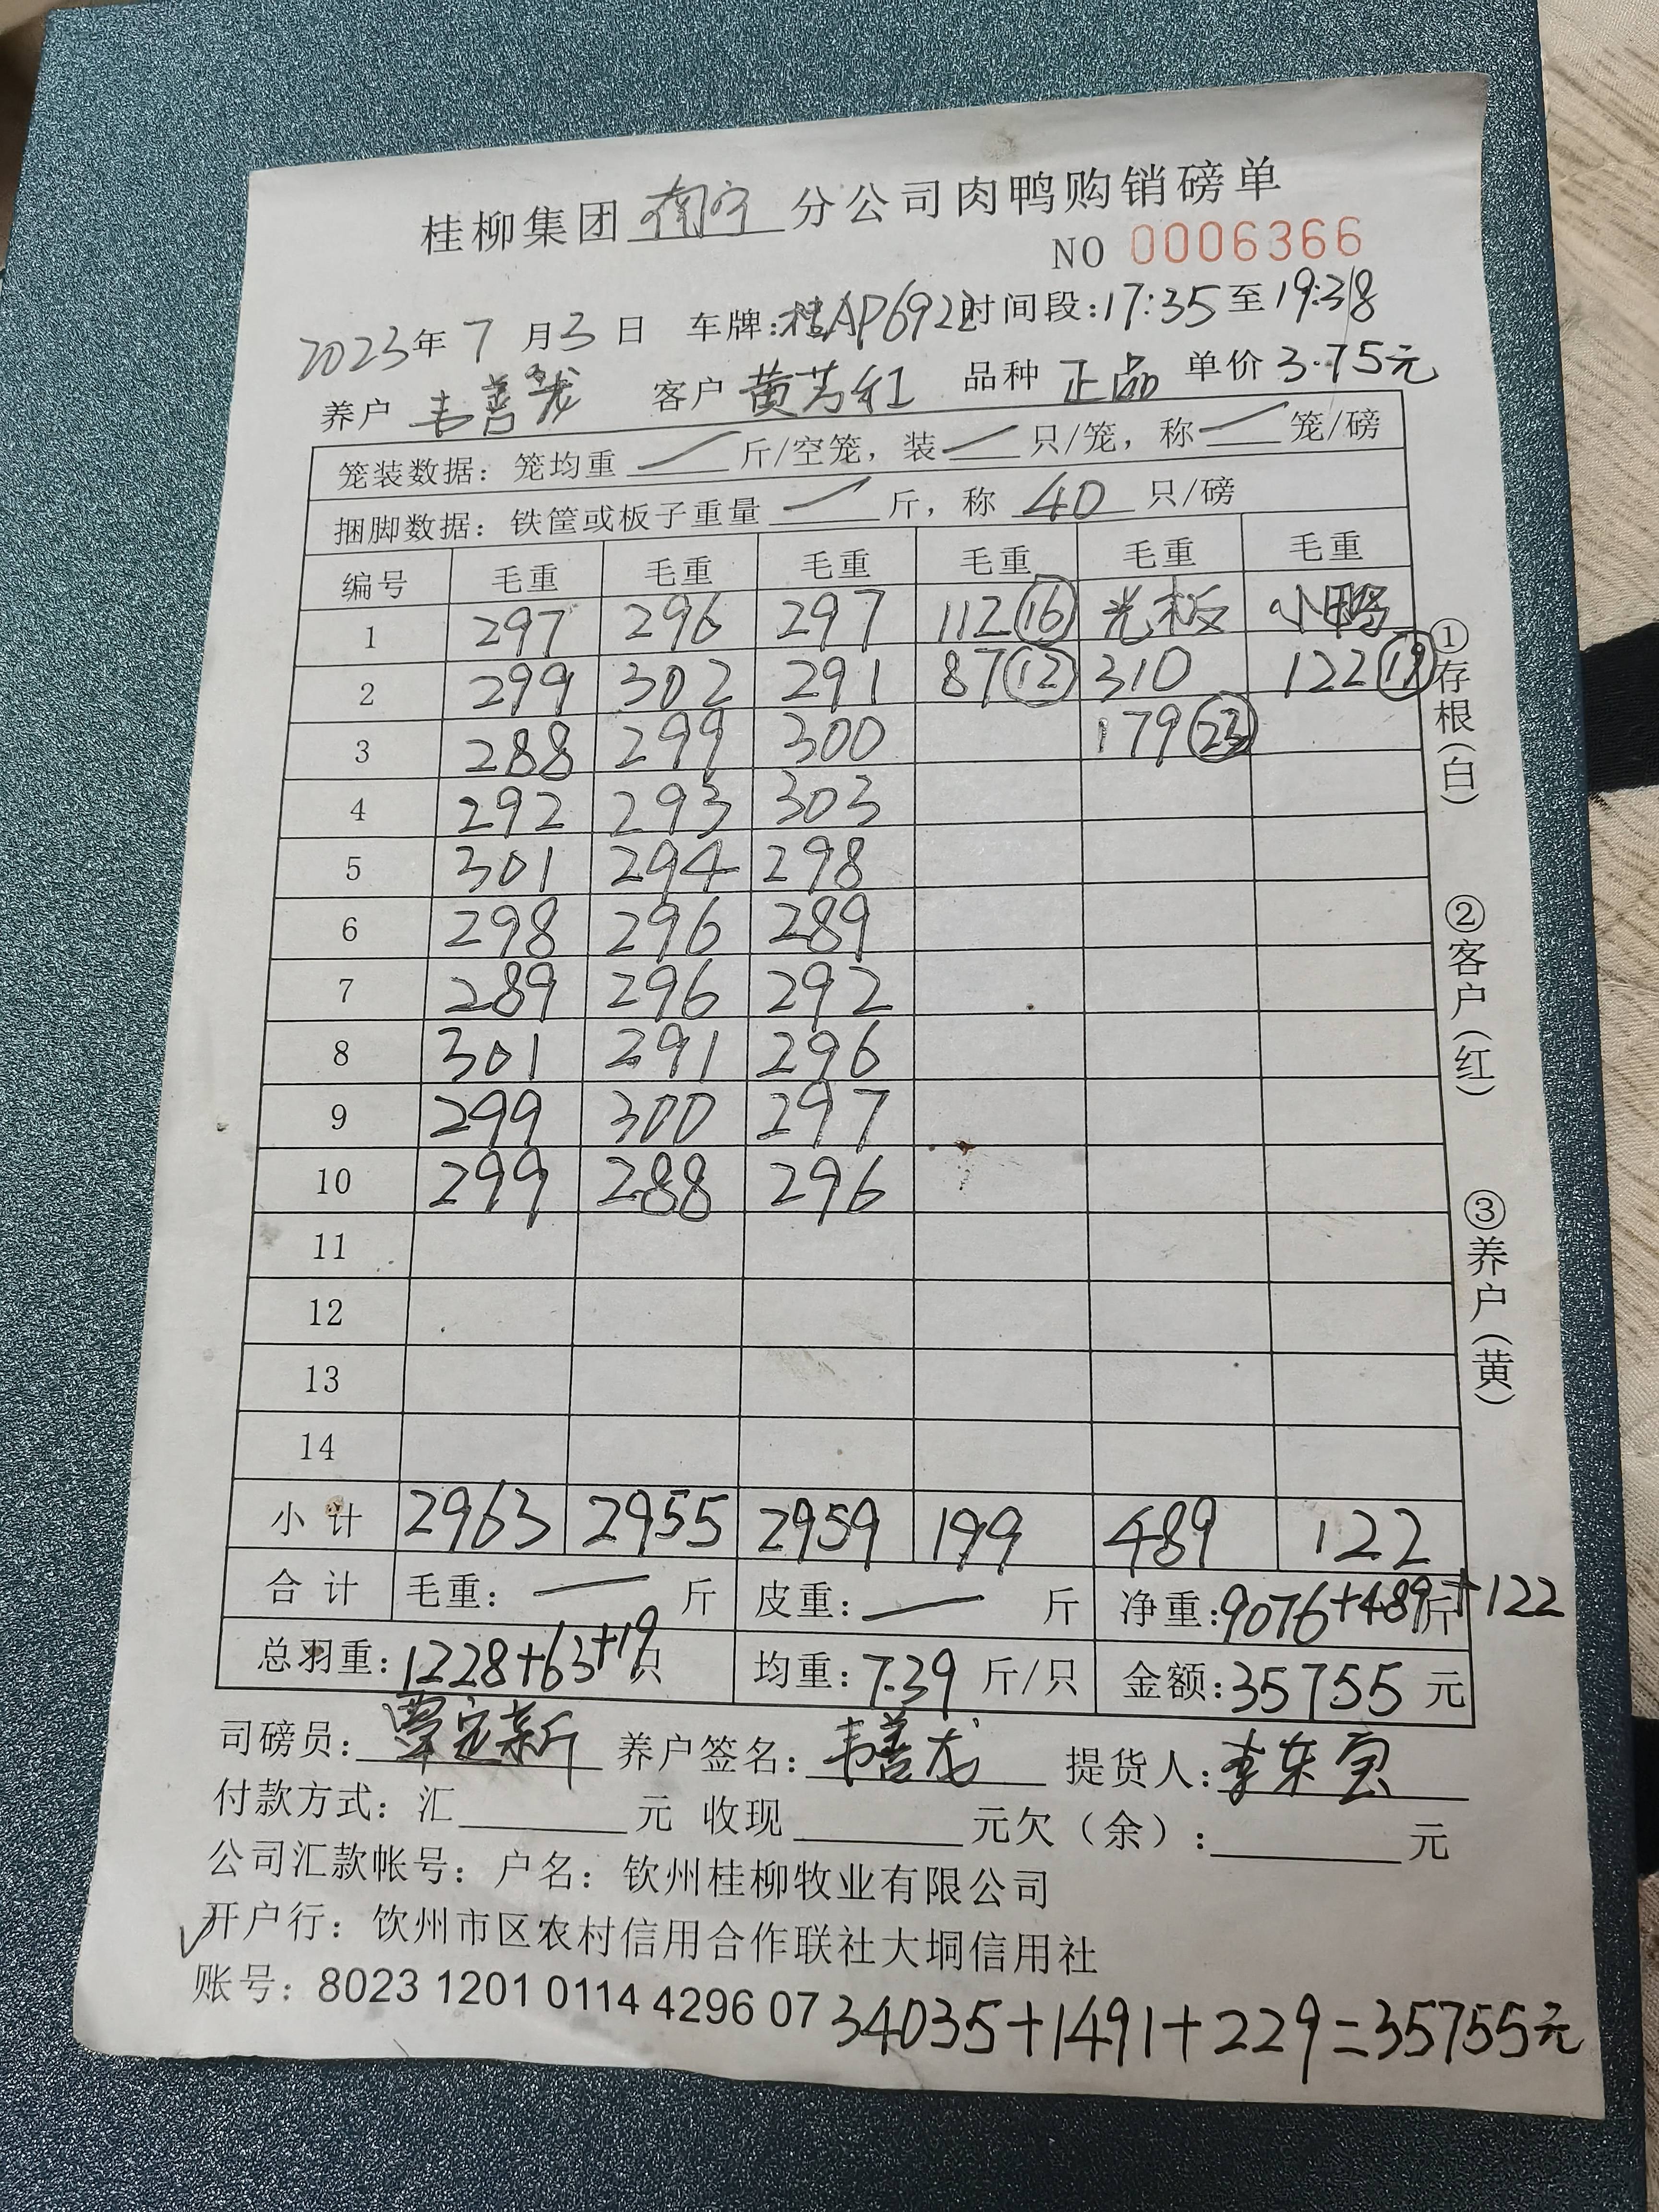 桂柳集团南宁分公司肉鸭购销磅单
NO 0006366
2023年7月3日 车牌:桂AP6922时间段:17:35至19:38
养户 韦善龙 客户 黄芳红 品种 正品 单价3.75元
笼装数据: 笼均重 — 斤/空笼, 装 — 只/笼, 称 — 笼/磅
捆脚数据: 铁筐或板子重量 — 斤, 称 40 只/磅
编号 毛重 毛重 毛重 毛重 毛重 毛重
1 297 296 297 112⑯ 光板 小鸭
2 299 302 291 87⑫ 310 122⑲
3 288 299 300 179㉓
4 292 293 303
5 301 294 298
6 298 296 289
7 289 296 292
8 301 291 296
9 299 300 297
10 299 288 296
11
12
13
14
小计 2963 2955 2959 199 489 122
合计 毛重: — 斤 皮重: — 斤 净重:9076+489斤+122
总羽重:1228+63+19只 均重:7.39斤/只 金额:35755元
司磅员:覃定新 养户签名:韦善龙 提货人:李东
付款方式: 汇 元 收现 元欠(余): 元
公司汇款帐号: 户名: 钦州桂柳牧业有限公司
✓开户行: 饮州市区农村信用合作联社大垌信用社
账号: 8023 1201 0114 4296 07
34035+1491+229=35755元
①存根(白)
②客户(红)
③养户(黄)